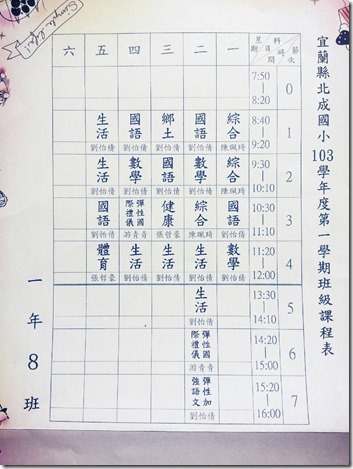 宜蘭縣北成國小103學年度第一學期班級課程表
節次 時間 科目 星期 一 二 三 四 五 六
0 7:50 | 8:20
1 8:40 | 9:20 綜合 國語 鄉土 國語 生活
陳珮琦 劉怡倩 劉怡倩 劉怡倩 劉怡倩
2 9:30 | 10:10 綜合 數學 國語 數學 生活
陳珮琦 劉怡倩 劉怡倩 劉怡倩 劉怡倩
3 10:30 | 11:10 國語 綜合 健康 彈性國際禮儀 國語
劉怡倩 陳珮琦 張哲豪 游青青 劉怡倩
4 11:20 | 12:00 數學 生活 生活 生活 體育
劉怡倩 劉怡倩 劉怡倩 劉怡倩 張哲豪
5 13:30 | 14:10 生活
劉怡倩
6 14:20 | 15:00 彈性國際禮儀
游青青
7 15:20 | 16:00 彈性加強語文
劉怡倩
一年8班